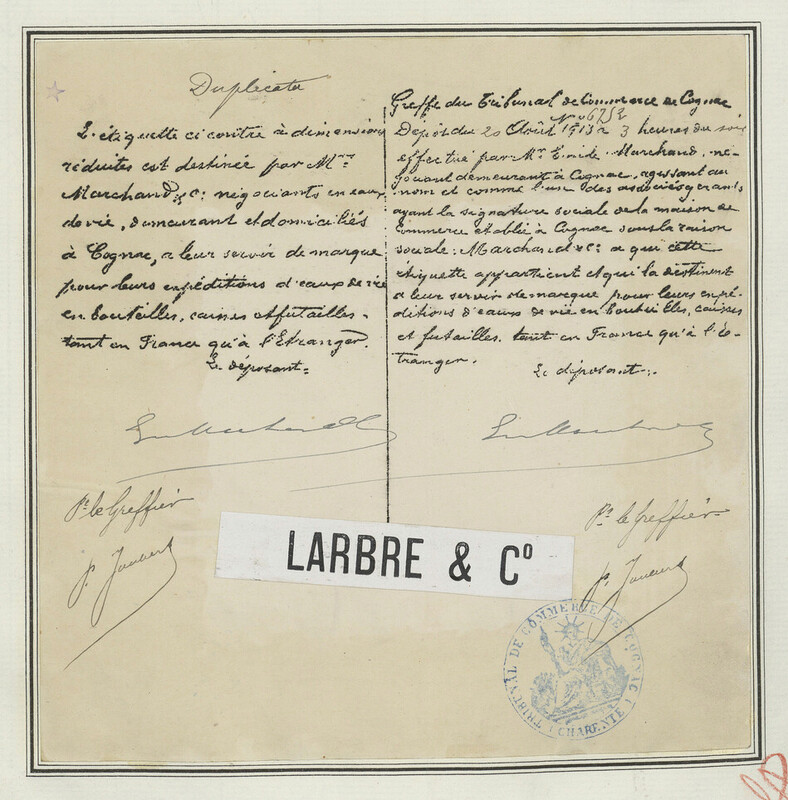 Duplicata
L'étiquette ci contre à dimensions
réduites est destinée par Mrs
Marchand & Cie négociants en eaux
de vie, demeurant et domiciliés
à Cognac, a leur servir de marque
pour leurs expéditions d'eaux de vie
en bouteilles, caisses et futailles -
tant en France qu'à l'Etranger.
Le déposant =
Pr le Greffier
Greffe du Tribunal de Commerce de Cognac
No 6752
Dépôt du 20 Août 1913 a 3 heures du soir
effectué par Mr Emile Marchand, né-
gociant demeurant à Cognac, agissant au
nom et comme l'un des associés gérants
ayant la signature sociale de la maison de
Commerce établie à Cognac sous la raison
sociale: Marchand & Cie a qui cette
étiquette appartient et qui la destinent
a leur servir de marque pour leurs expé-
ditions d'eaux de vie en bouteilles, caisses
et futailles. tant en France qu'à l'é-
tranger.
Le déposant -.
Pr le Greffier
LARBRE & Co
TRIBUNAL DE COMMERCE DE COGNAC
(CHARENTE)